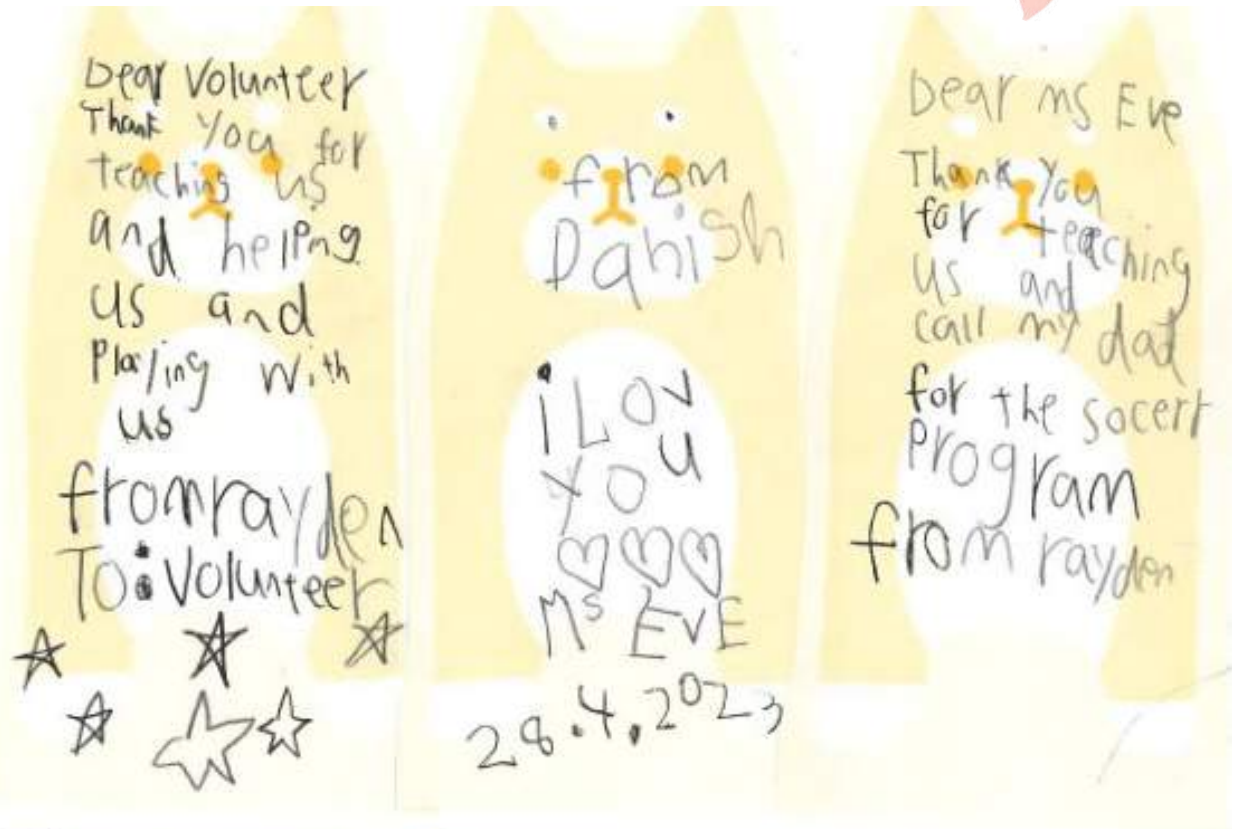 Dear Volunteer
Thank you for
teaching us
and helping
us and
Playing with
us
from rayden
To: Volunteer
from
Danish
i Lov
yo u
Ms EvE
28.4.2023
Dear ms Eve
Thank you
for teaching
us and
call my dad
for the socerr
program
from rayden